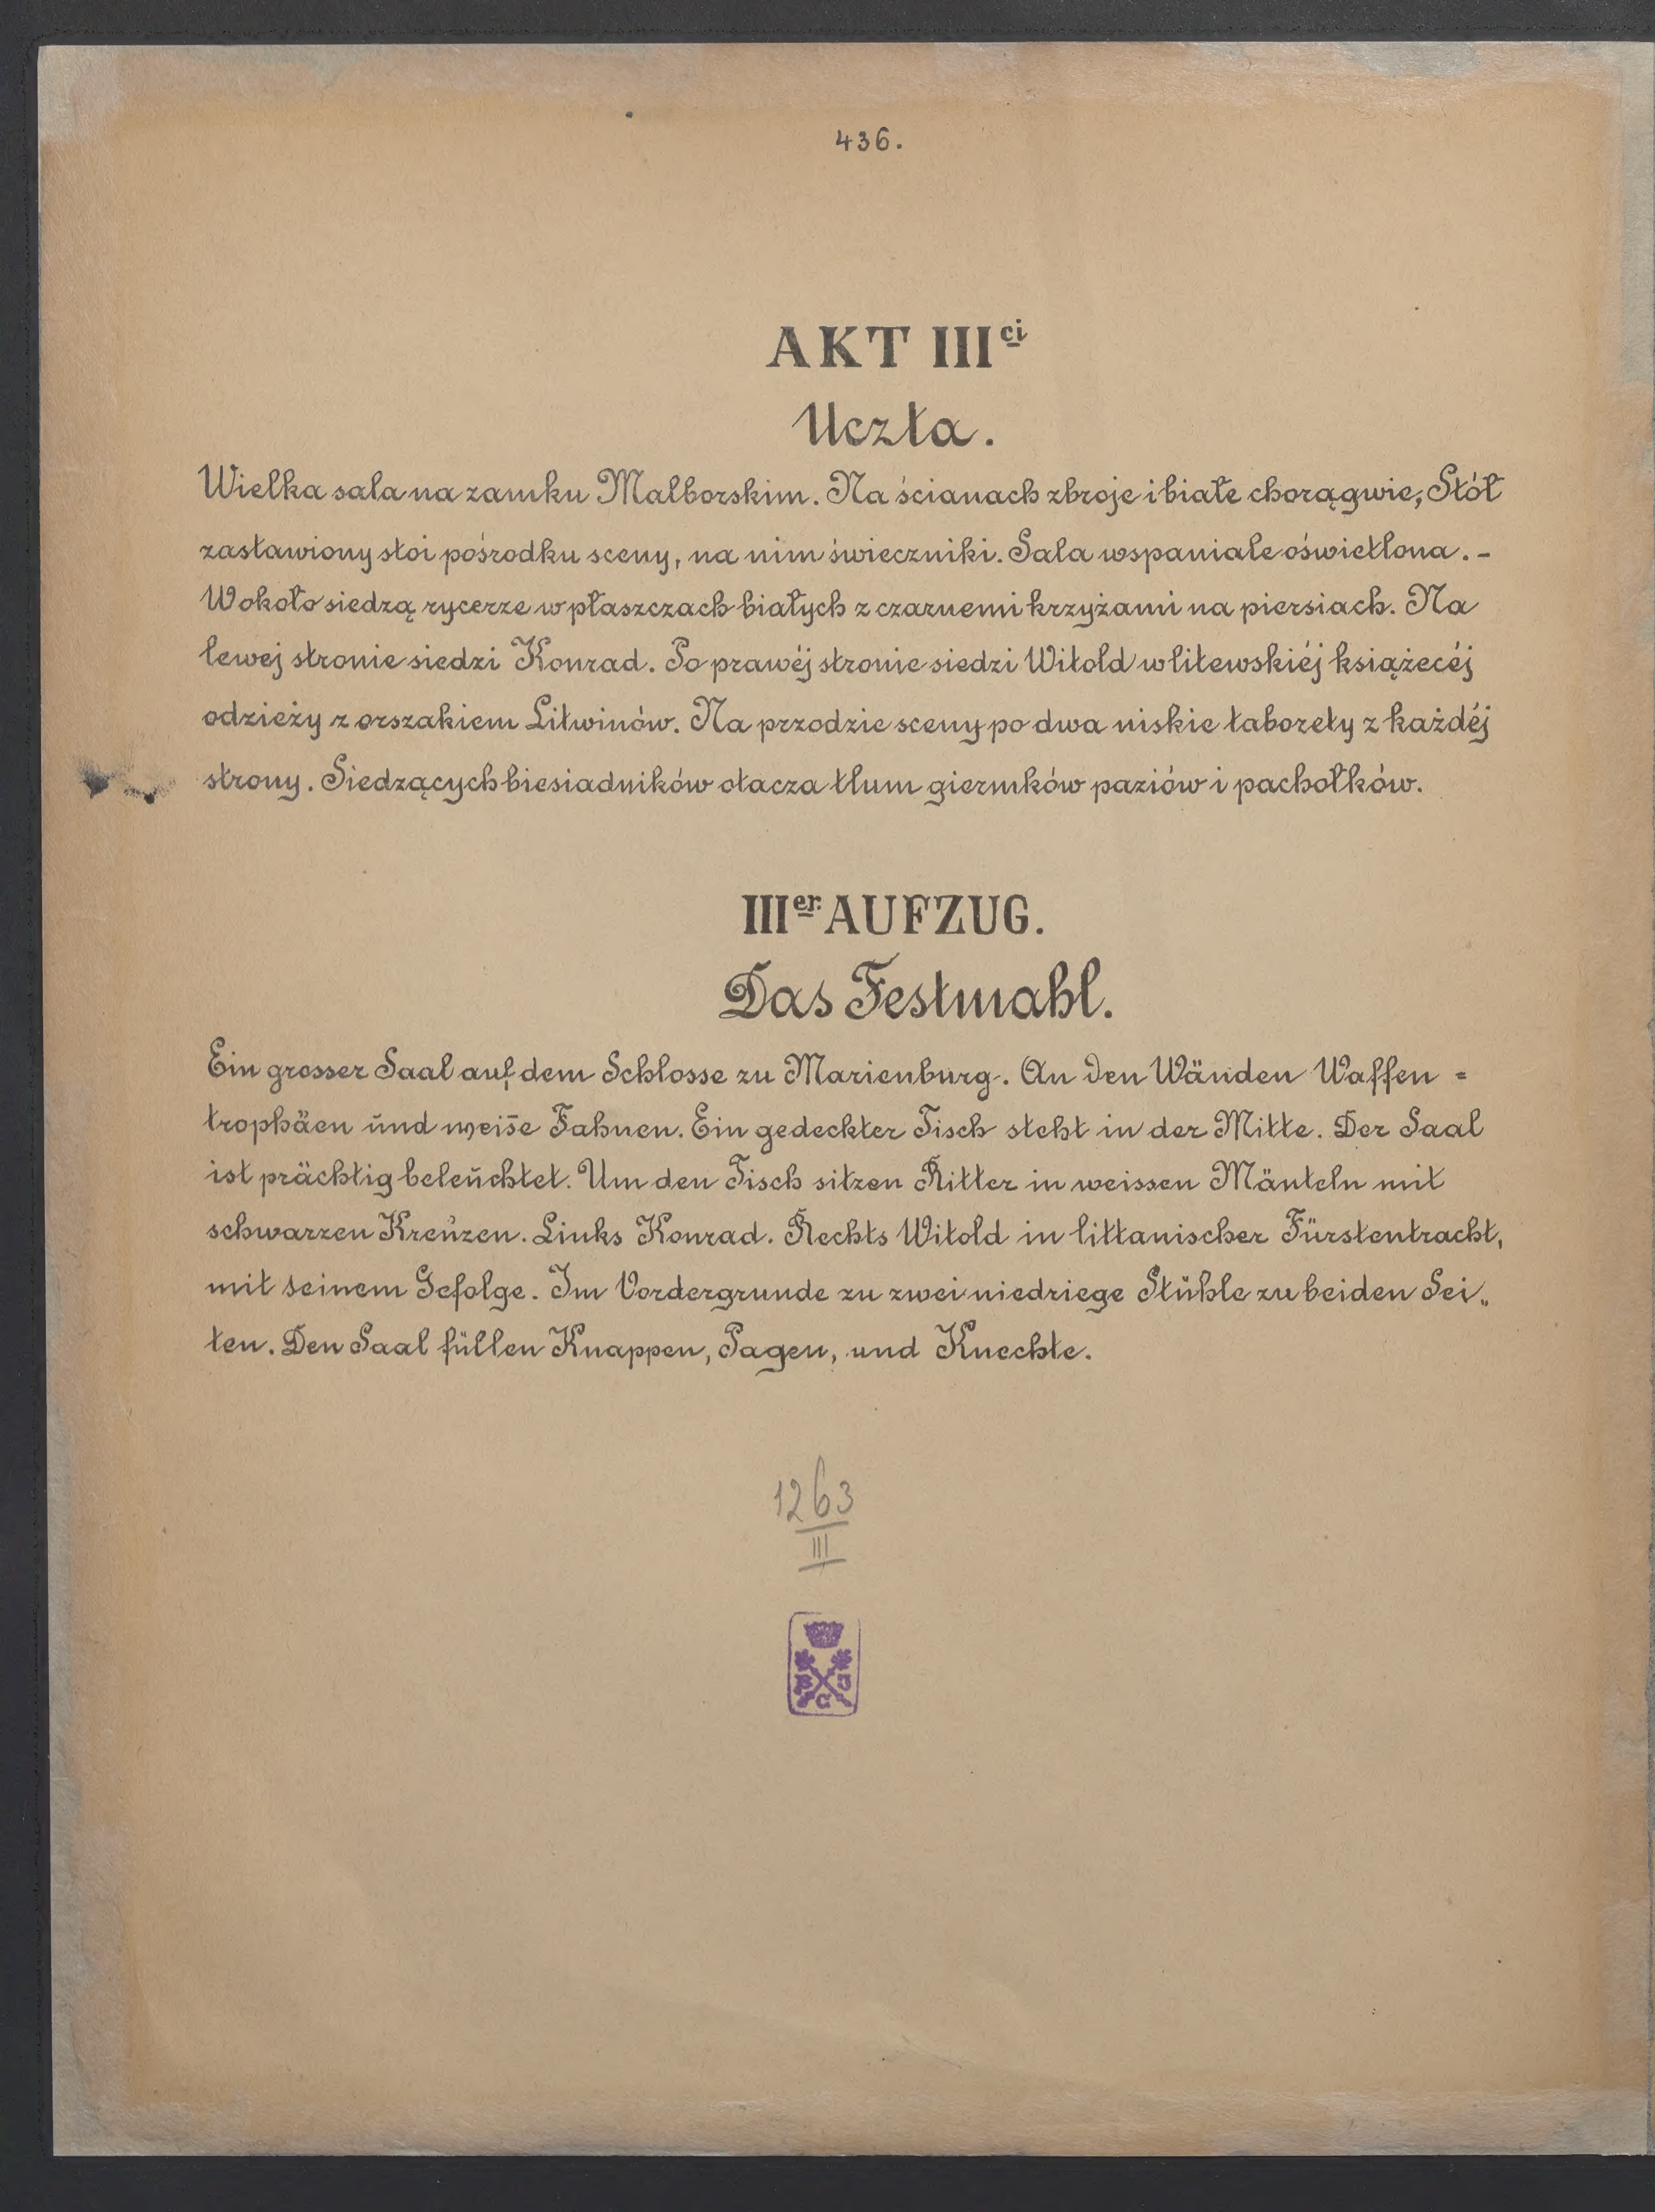 436.
AKT IIIci
Uczta.
Wielka sala na zamku Malborskim. Na ścianach zbroje i białe chorągwie, Stół
zastawiony stoi pośrodku sceny, na nim świeczniki. Sala wspaniale oświetlona. -
Wokoło siedzą rycerze w płaszczach białych z czarnemi krzyżami na piersiach. Na
lewej stronie siedzi Konrad. Po prawéj stronie siedzi Witold w litewskiéj książecéj
odzieży z orszakiem Litwinów. Na przodzie sceny po dwa niskie taborety z każdéj
strony. Siedzących biesiadników otacza tłum giermków paziów i pachołków.
IIIer AUFZUG.
Das Festmahl.
Ein grosser Saal auf dem Schlosse zu Marienburg. An den Wänden Waffen =
trophäen und weis̄e Fahnen. Ein gedeckter Tisch steht in der Mitte. Der Saal
ist prächtig beleuchtet. Um den Tisch sitzen Ritter in weissen Mänteln mit
schwarzen Kreuzen. Links Konrad. Rechts Witold in littanischer Fürstentracht,
mit seinem Gefolge. Im Vordergrunde zu zwei niedriege Stühle zu beiden Sei„
ten. Den Saal füllen Knappen, Pagen, und Knechte.
1263
III
B J
G